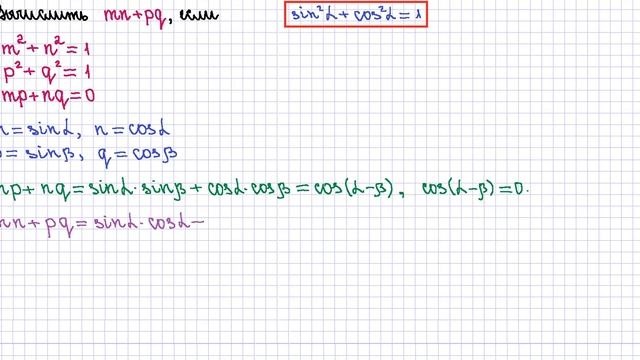 mn+pq, если
sin²α + cos²α = 1
m² + n² = 1
p² + q² = 1
mp + nq = 0
= sinα, n = cosα
= sinβ, q = cosβ
mp + nq = sinα·sinβ + cosα·cosβ = cos(α-β), cos(α-β) = 0.
mn + pq = sinα·cosα